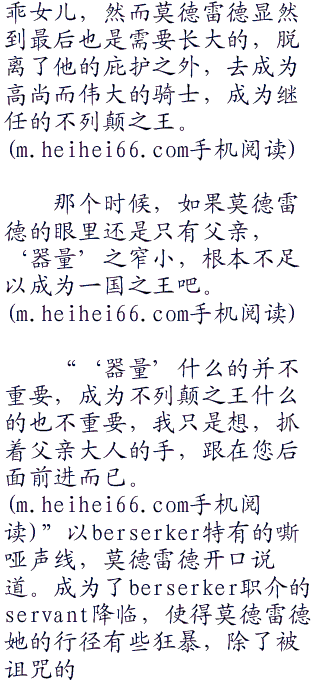 乖女儿，然而莫德雷德显然
到最后也是需要长大的，脱
离了他的庇护之外，去成为
高尚而伟大的骑士，成为继
任的不列颠之王。
(m.heihei66.com手机阅读)
那个时候，如果莫德雷
德的眼里还是只有父亲，
‘器量’之窄小，根本不足
以成为一国之王吧。
(m.heihei66.com手机阅读)
“‘器量’什么的并不
重要，成为不列颠之王什么
的也不重要，我只是想，抓
着父亲大人的手，跟在您后
面前进而已。
(m.heihei66.com手机阅
读)”以berserker特有的嘶
哑声线，莫德雷德开口说
道。成为了berserker职介的
servant降临，使得莫德雷德
她的行径有些狂暴，除了被
诅咒的